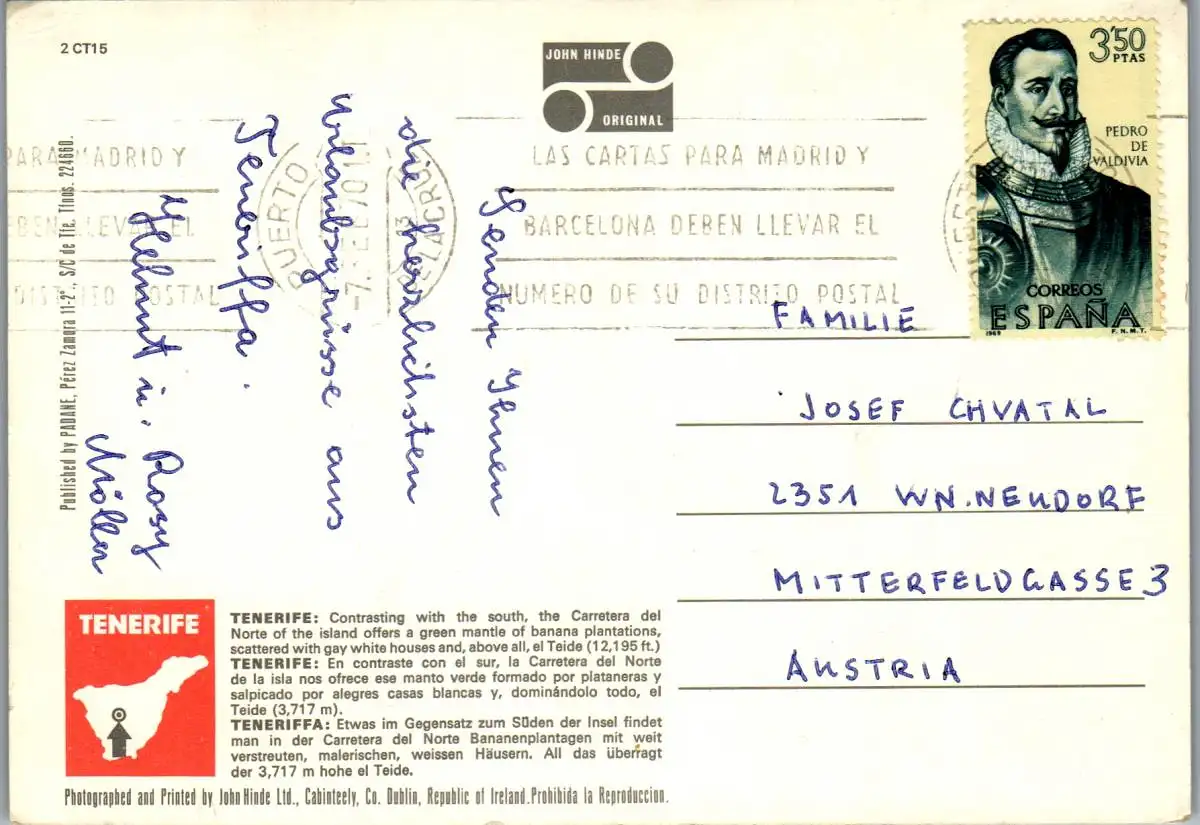 2 CT15
JOHN HINDE
ORIGINAL
3'50
PTAS
PEDRO
DE
VALDIVIA
CORREOS
ESPAÑA
1969
F.N.M.T.
PARA MADRID Y
DEBEN LLEVAR EL
DISTRITO POSTAL
PUERTO
DE LA CRUZ
LAS CARTAS PARA MADRID Y
BARCELONA DEBEN LLEVAR EL
NUMERO DE SU DISTRITO POSTAL
Senden Ihnen
die herzlichsten
Urlaubsgrüsse aus
Teneriffa.
Helmut u. Rosy
Möller
FAMILIE
JOSEF CHVATAL
2351 WN.NEUDORF
MITTERFELDGASSE 3
AUSTRIA
Published by PADANE, Pérez Zamora 11-2°, S/C de Tfe. Tfnos. 224660.
TENERIFE
TENERIFE: Contrasting with the south, the Carretera del
Norte of the island offers a green mantle of banana plantations,
scattered with gay white houses and, above all, el Teide (12,195 ft.)
TENERIFE: En contraste con el sur, la Carretera del Norte
de la isla nos ofrece ese manto verde formado por plataneras y
salpicado por alegres casas blancas y, dominándolo todo, el
Teide (3,717 m).
TENERIFFA: Etwas im Gegensatz zum Süden der Insel findet
man in der Carretera del Norte Bananenplantagen mit weit
verstreuten, malerischen, weissen Häusern. All das überragt
der 3,717 m hohe el Teide.
Photographed and Printed by John Hinde Ltd., Cabinteely, Co. Dublin, Republic of Ireland. Prohibida la Reproduccion.